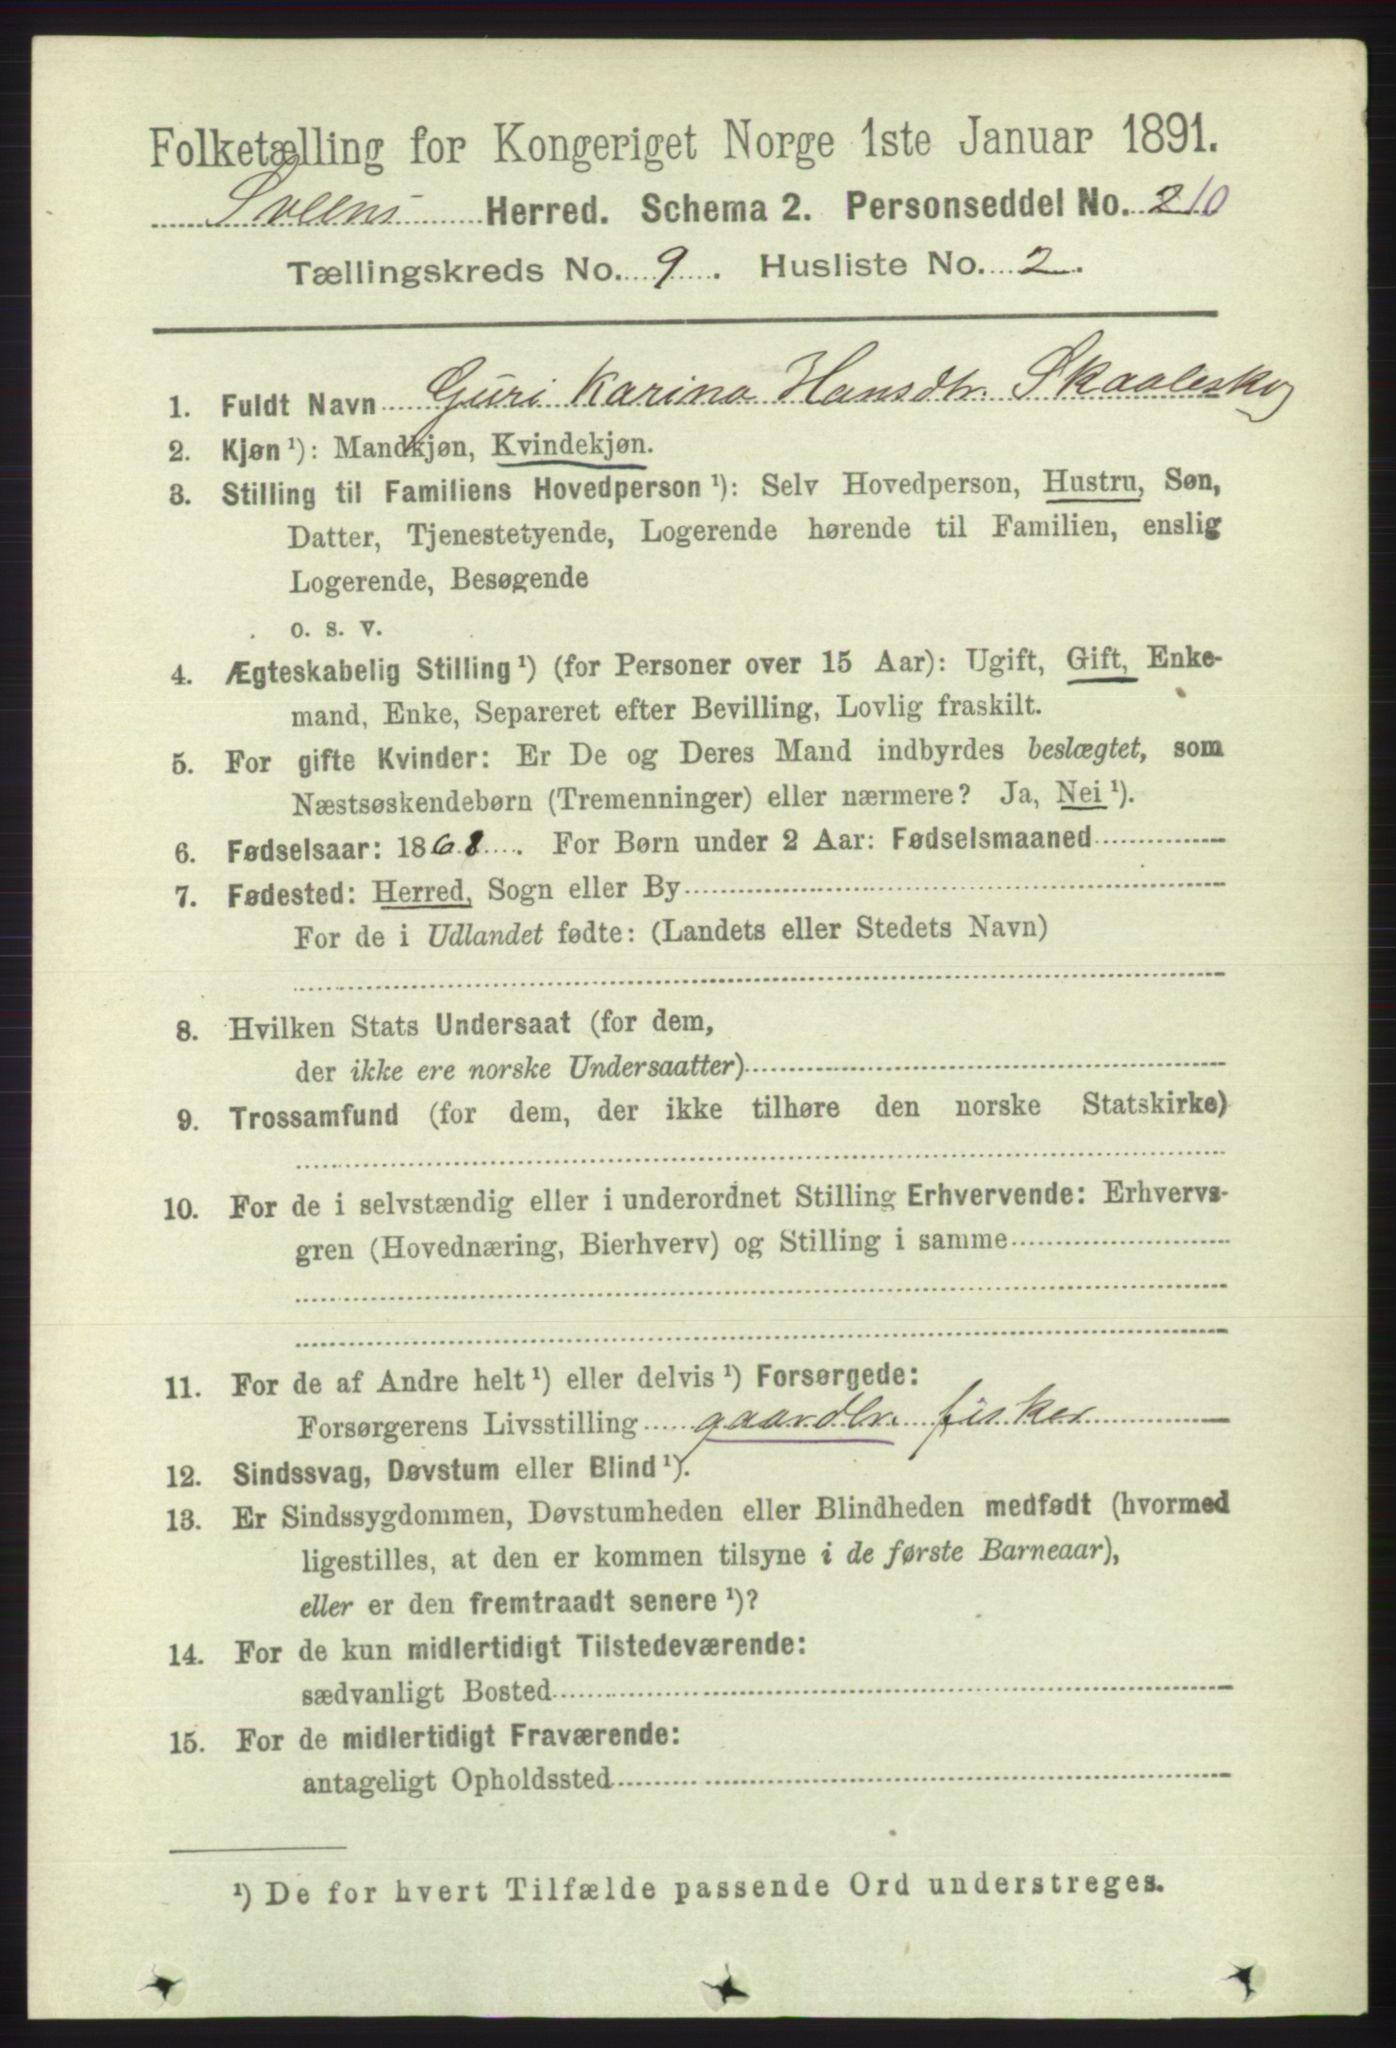 Folketælling for Kongeriget Norge 1ste Januar 1891.
Sveens Herred. Schema 2. Personseddel No. 210
Tællingskreds No. 9. Husliste No. 2.
1. Fuldt Navn Guri Karina Hansdtr. Skaaleskog
2. Kjøn ¹): Mandkjøn, Kvindekjøn.
3. Stilling til Familiens Hovedperson ¹): Selv Hovedperson, Hustru, Søn,
Datter, Tjenestetyende, Logerende hørende til Familien, enslig
Logerende, Besøgende
o. s. v.
4. Ægteskabelig Stilling ¹) (for Personer over 15 Aar): Ugift, Gift, Enke-
mand, Enke, Separeret efter Bevilling, Lovlig fraskilt.
5. For gifte Kvinder: Er De og Deres Mand indbyrdes beslægtet, som
Næstsøskendebørn (Tremenninger) eller nærmere? Ja, Nei ¹).
6. Fødselsaar: 1868. For Børn under 2 Aar: Fødselsmaaned
7. Fødested: Herred, Sogn eller By
For de i Udlandet fødte: (Landets eller Stedets Navn)
8. Hvilken Stats Undersaat (for dem,
der ikke ere norske Undersaatter)
9. Trossamfund (for dem, der ikke tilhøre den norske Statskirke)
10. For de i selvstændig eller i underordnet Stilling Erhvervende: Erhvervs-
gren (Hovednæring, Bierhverv) og Stilling i samme
11. For de af Andre helt ¹) eller delvis ¹) Forsørgede:
Forsørgerens Livsstilling gaardbr. fisker
12. Sindssvag, Døvstum eller Blind ¹).
13. Er Sindssygdommen, Døvstumheden eller Blindheden medfødt (hvormed
ligestilles, at den er kommen tilsyne i de første Barneaar),
eller er den fremtraadt senere ¹)?
14. For de kun midlertidigt Tilstedeværende:
sædvanligt Bosted
15. For de midlertidigt Fraværende:
antageligt Opholdssted
¹) De for hvert Tilfælde passende Ord understreges.